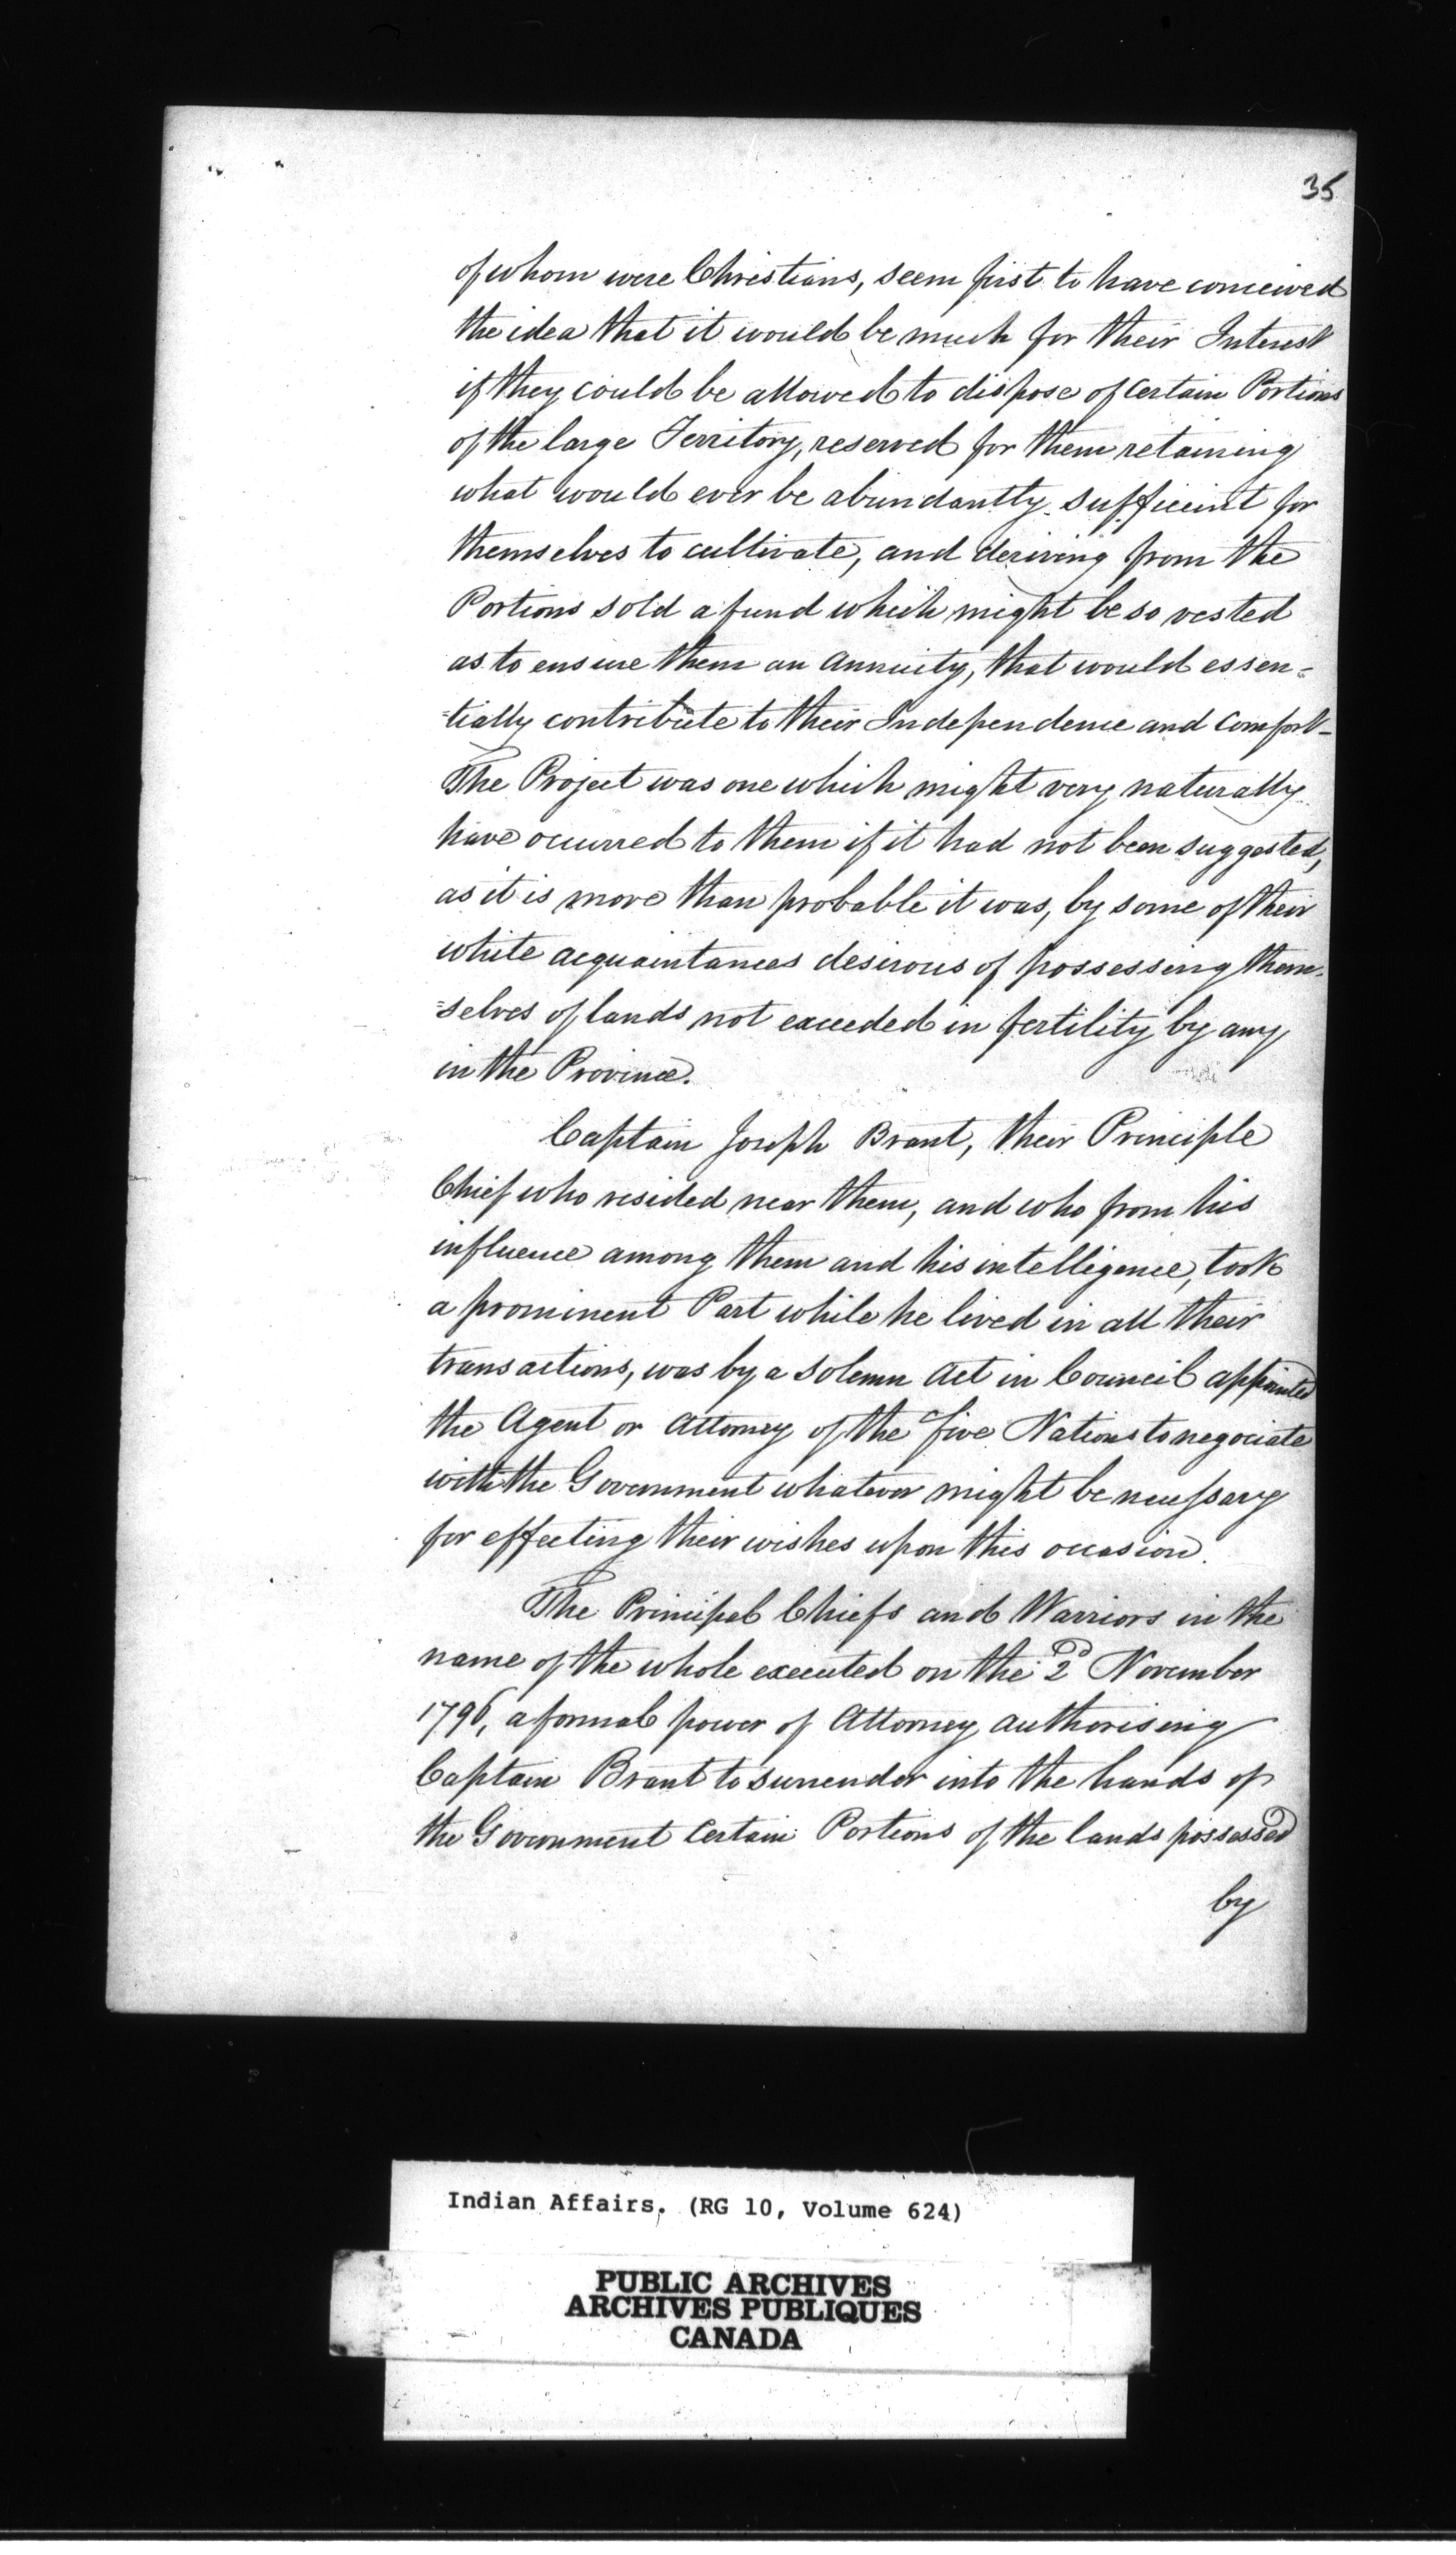 35
of whom were Christians, seem first to have conceived
the idea that it would be much for their Interest
if they could be allowed to dispose of certain Portions
of the large Territory, reserved for them retaining
what would ever be abundantly sufficient for
themselves to cultivate, and deriving from the
Portions sold a fund which might be so vested
as to ensure them an annuity, that would essen=
=tially contribute to their Independence and comfort_
The Project was one which might very naturally
have occurred to them if it had not been suggested,
as it is more than probable it was, by some of their
white acquaintances desirous of possessing them=
=selves of lands not exceeded in fertility by any
in the Province.
Captain Joseph Brant, their Principle
Chief who resided near them, and who from his
influence among them and his intelligence, took
a prominent Part while he lived in all their
transactions, was by a solemn Act in Council appointed
the Agent or Attorney of the five Nations to negociate
with the Government whatever might be necessary
for effecting their wishes upon this occasion.
The Principal Chiefs and Warriors in the
name of the whole executed on the 2d November
1796, a formal power of Attorney authorising
Captain Brant to surrender into the hands of
the Government certain Portions of the lands possessed
by
Indian Affairs. (RG 10, Volume 624)
PUBLIC ARCHIVES
ARCHIVES PUBLIQUES
CANADA